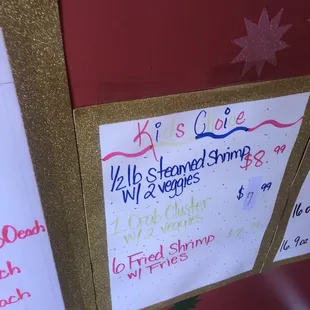 Kids Choice
1/2 lb steamed Shrimp $8.99
w/ 2 veggies
1 Crab Cluster $7.99
w/ 2 veggies
6 Fried Shrimp
w/ Fries
0each
ach
each
16.9oz